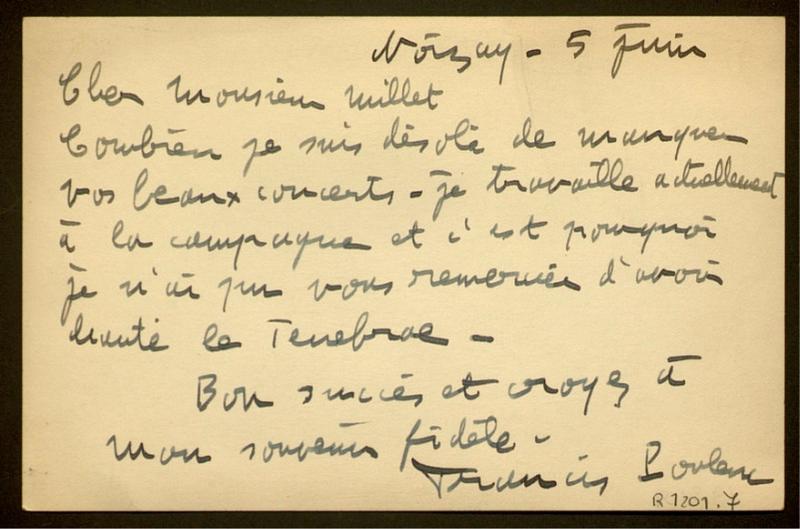 Noizay - 5 Juin
Cher Monsieur Millet
Combien je suis désolé de manquer
vos beaux concerts - je travaille actuellement
à la campagne et c'est pourquoi
je n'ai pu vous remercier d'avoir
chanté le Tenebrae -
Bon succès et croyez à
mon souvenir fidèle -
Francis Poulenc
R 1201.7